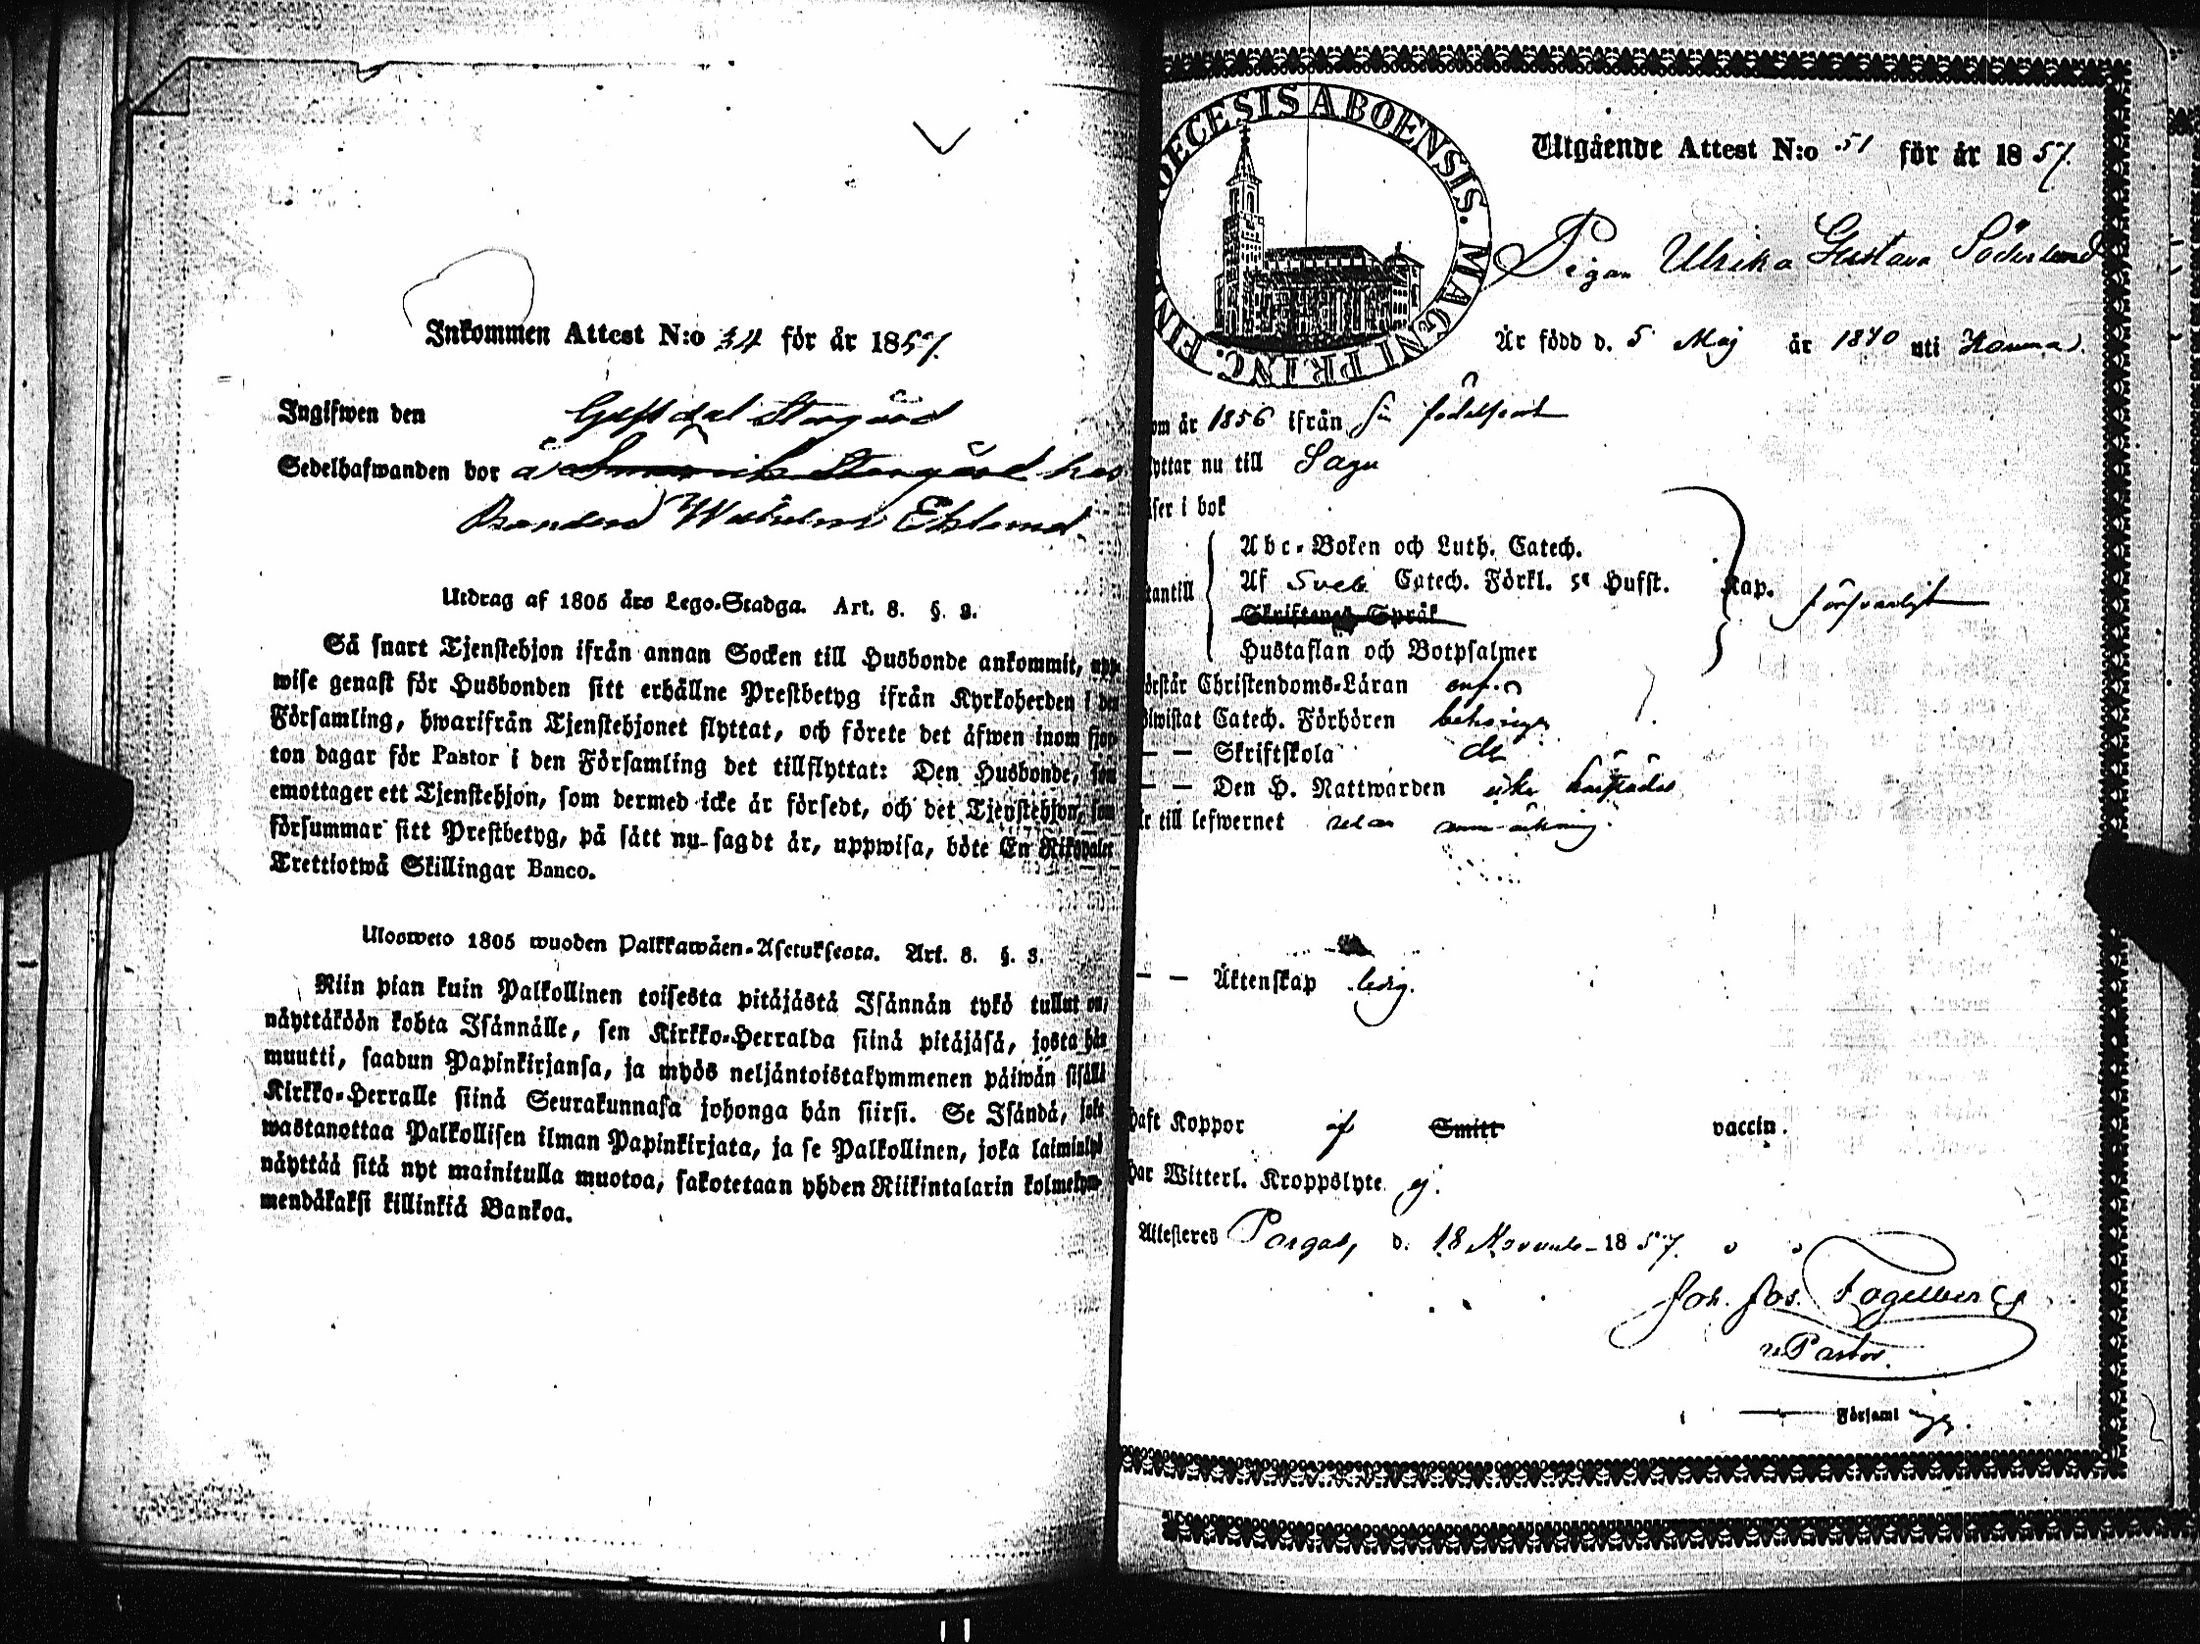 Inkommen Attest N:o 34 för år 1857.
Ingifwen den
Gesterdal Storgård
Sedelhafwanden bor å Storgård hos
Bonden Wilhelm Eklund.
Utdrag af 1805 års Lego-Stadga. Art. 8. §. 3.
Så snart Tjenstehjon ifrån annan Socken till Husbonde ankommit, upp-
wise genast för Husbonden sitt erhållne Prestbetyg ifrån Kyrkoherden i den
Församling, hwarifrån Tjenstehjonet flyttat, och förete det äfwen inom fjor-
ton dagar för Pastor i den Församling det tillflyttat: Den Husbonde, som
emottager ett Tjenstehjon, som dermed icke är försedt, och det Tjenstehjon, som
försummar sitt Prestbetyg, på sätt nu sagdt är, uppwisa, böte En Riksdaler
Trettiotwå Skillingar Banco.
Ulosweto 1805 wuoden Palkkawäen-Asetuksesta. Art. 8. §. 3.
Niin pian kuin Palkollinen toisesta pitäjästä Isännän tykö tullut on,
näyttäköön kohta Isännälle, sen Kirkko-Herralda siinä pitäjäsä, josta hän
muutti, saadun Papinkirjansa, ja myös neljäntoistakymmenen päiwän sisällä
Kirkko-Herralle siinä Seurakunnasa johonga hän siirsi. Se Isändä, joka
wastanottaa Palkollisen ilman Papinkirjata, ja se Palkollinen, joka laiminlyö
näyttää sitä nyt mainitulla muotoa, sakotetaan yhden Riikintalarin kolmekym-
mendäkaksi killinkiä Bankoa.
DIOECESIS ABOENSIS. MAGNI PRINC. FINL
Utgående Attest N:o 51 för år 1857.
Pigan Ulrika Gustava Söderlund
Är född d. 5 Maj år 1840 uti
om år 1856 ifrån sin födelseort
yttar nu till Sagu
äser i bok
Abc-Boken och Luth. Catech.
antill Af Sveb. Catech. Förkl. 5e Hufst. Kap. försvarligt
Skriftenes Språk
Hustaflan och Botpsalmer
örstår Christendoms-Läran enf.
lwistat Catech. Förhören behörigen
— — Skriftskola do
— — Den H. Nattwarden
r till lefwernet utan anmärkning.
— — Äktenskap ledig.
haft Koppor af Smitt vaccin.
har Witterl. Kroppslyte ej.
Attesteres Pargas, d. 18 November 1857.
Joh. Jos. Fogelberg
v. Pastor.
i — Församling.